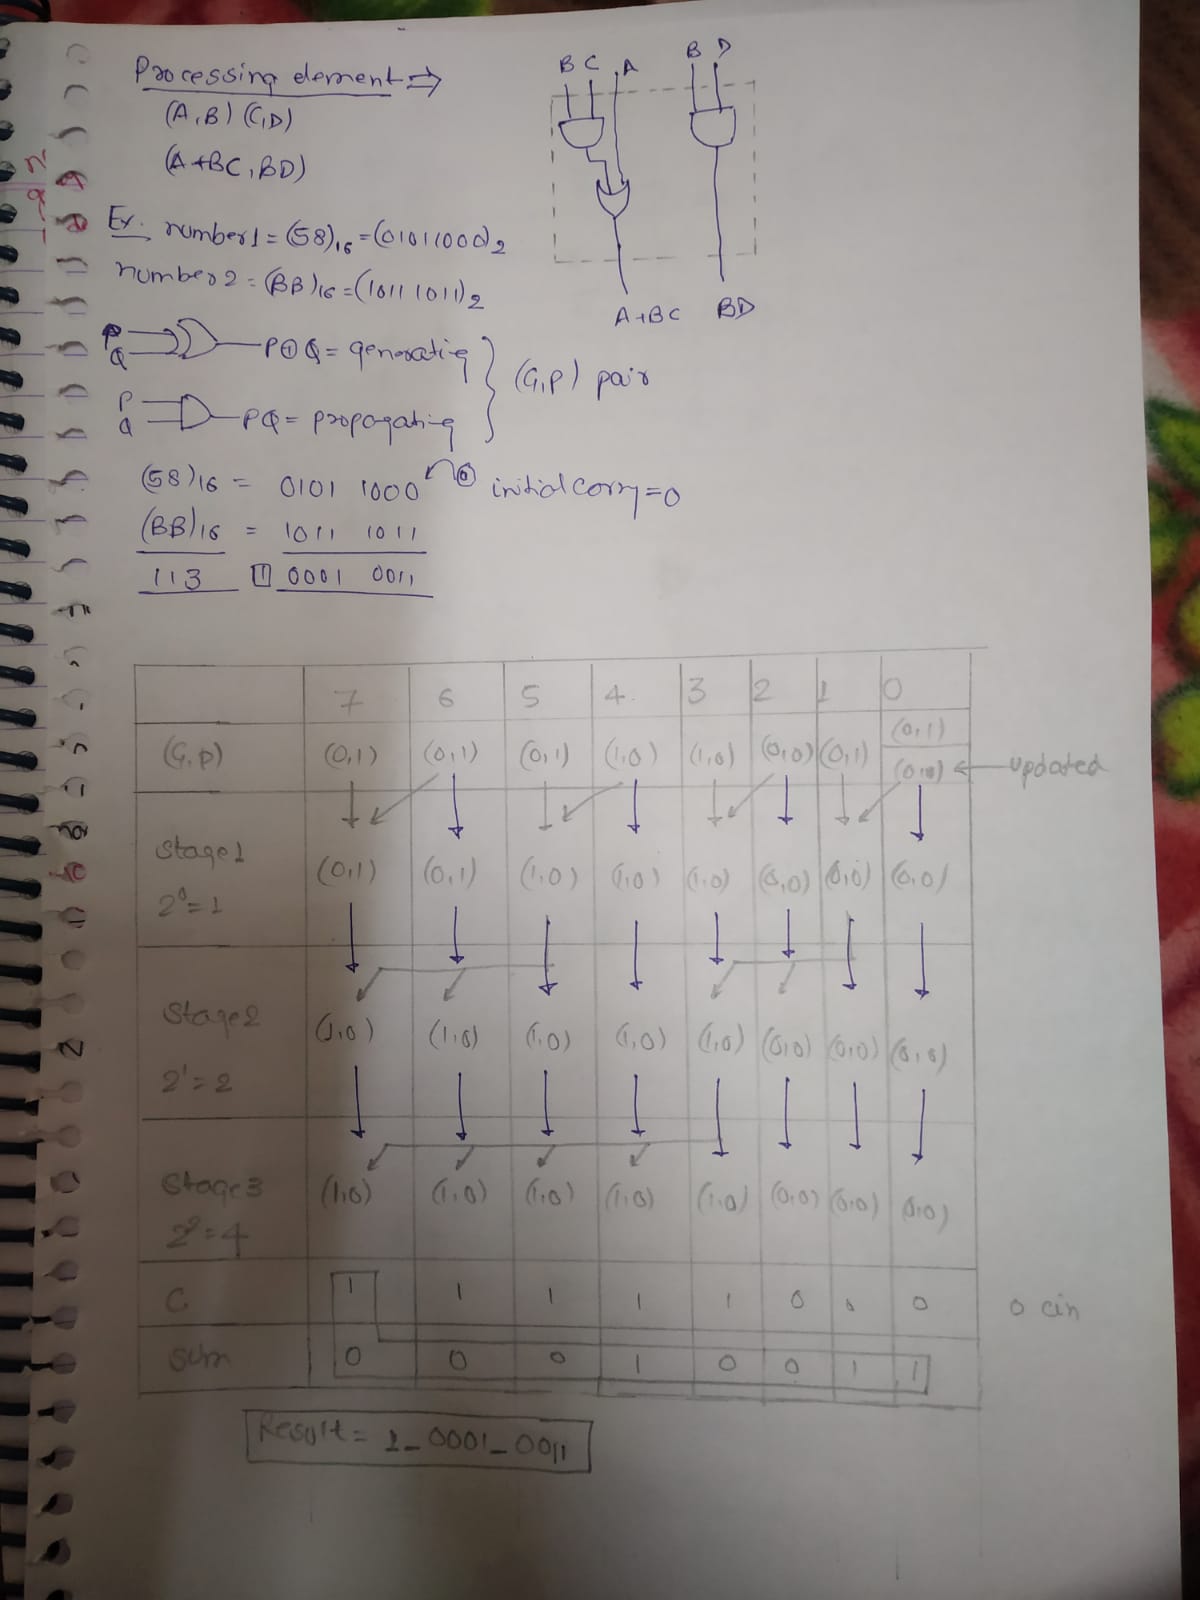 Processing element ⇒
(A,B) (C,D)
(A+BC, BD)
B C A B D
A+BC BD
Ex. number1 = (58)₁₆ = (01011000)₂
number2 = (BB)₁₆ = (1011 1011)₂
P
Q
P⊕Q = generating
P
Q
PQ = propagating
(G,P) pair
(58)₁₆ = 0101 1000 0 initial carry = 0
(BB)₁₆ = 1011 1011
113 1 0001 0011
7 6 5 4 3 2 1 0
(0,1)
(G,P) (0,1) (0,1) (0,1) (1,0) (1,0) (0,0) (0,1) (0,0) ← updated
Stage1
(0,1) (0,1) (1,0) (1,0) (1,0) (0,0) (0,0) (0,0)
2⁰=1
Stage2
(1,0) (1,0) (1,0) (1,0) (1,0) (0,0) (0,0) (0,0)
2¹=2
Stage3
(1,0) (1,0) (1,0) (1,0) (1,0) (0,0) (0,0) (0,0)
2²=4
C 1 1 1 1 1 0 0 0 0 cin
Sum 0 0 0 1 0 0 1 1
Result = 1_0001_0011